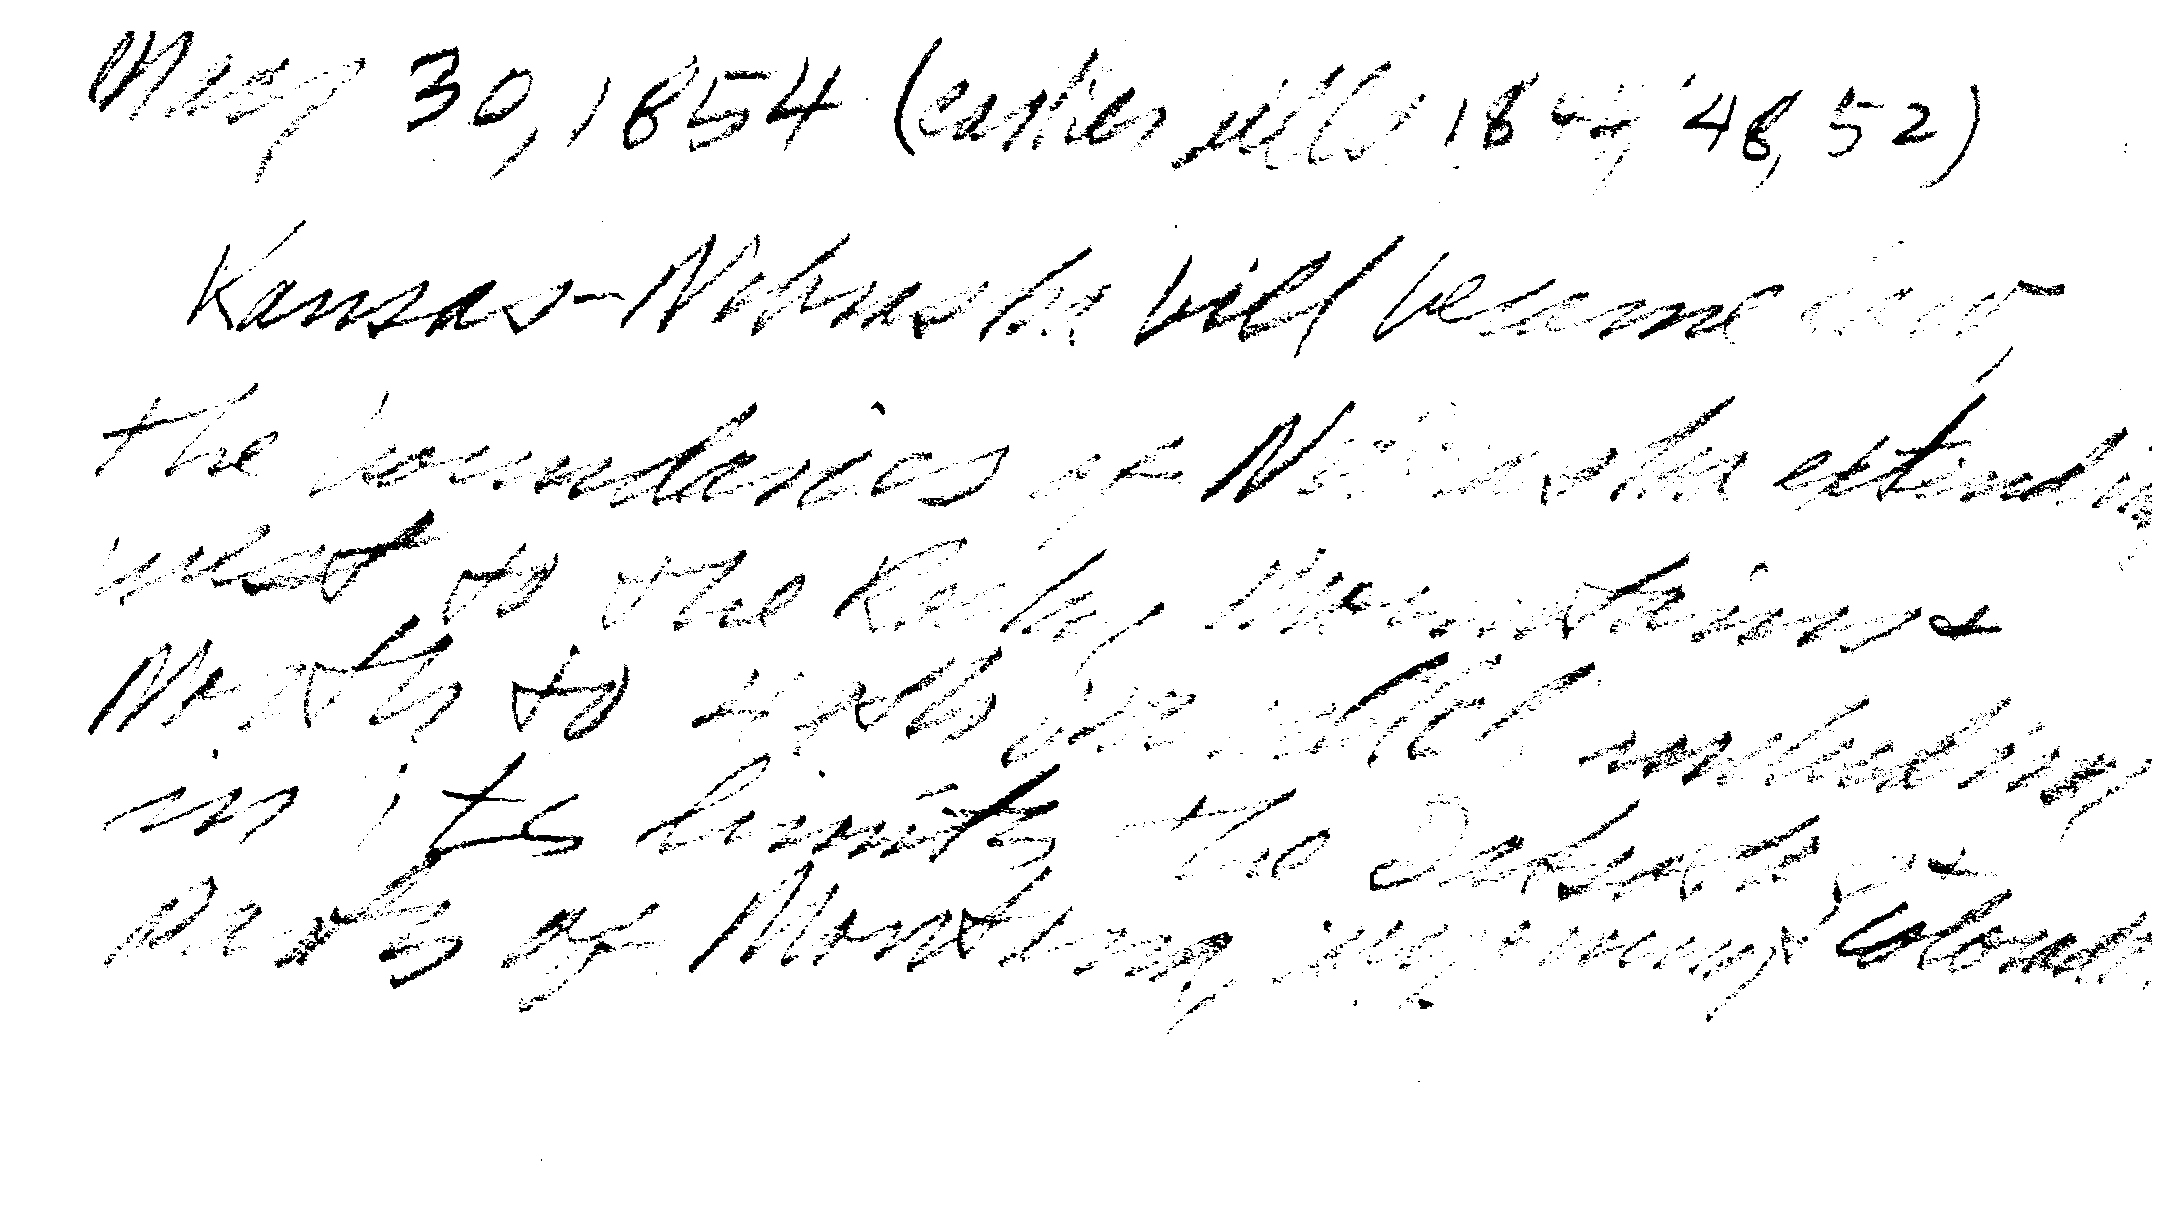 May 30, 1854 (earlier bills 1844, '48, 52)
Kansas-Nebraska bill became law,
the boundaries of Nebraska extending
west to the Rocky Mountains &
North to 49th parallel, including
in its limits the Dakotas, &
parts of Montana, Wyoming & Colorado.